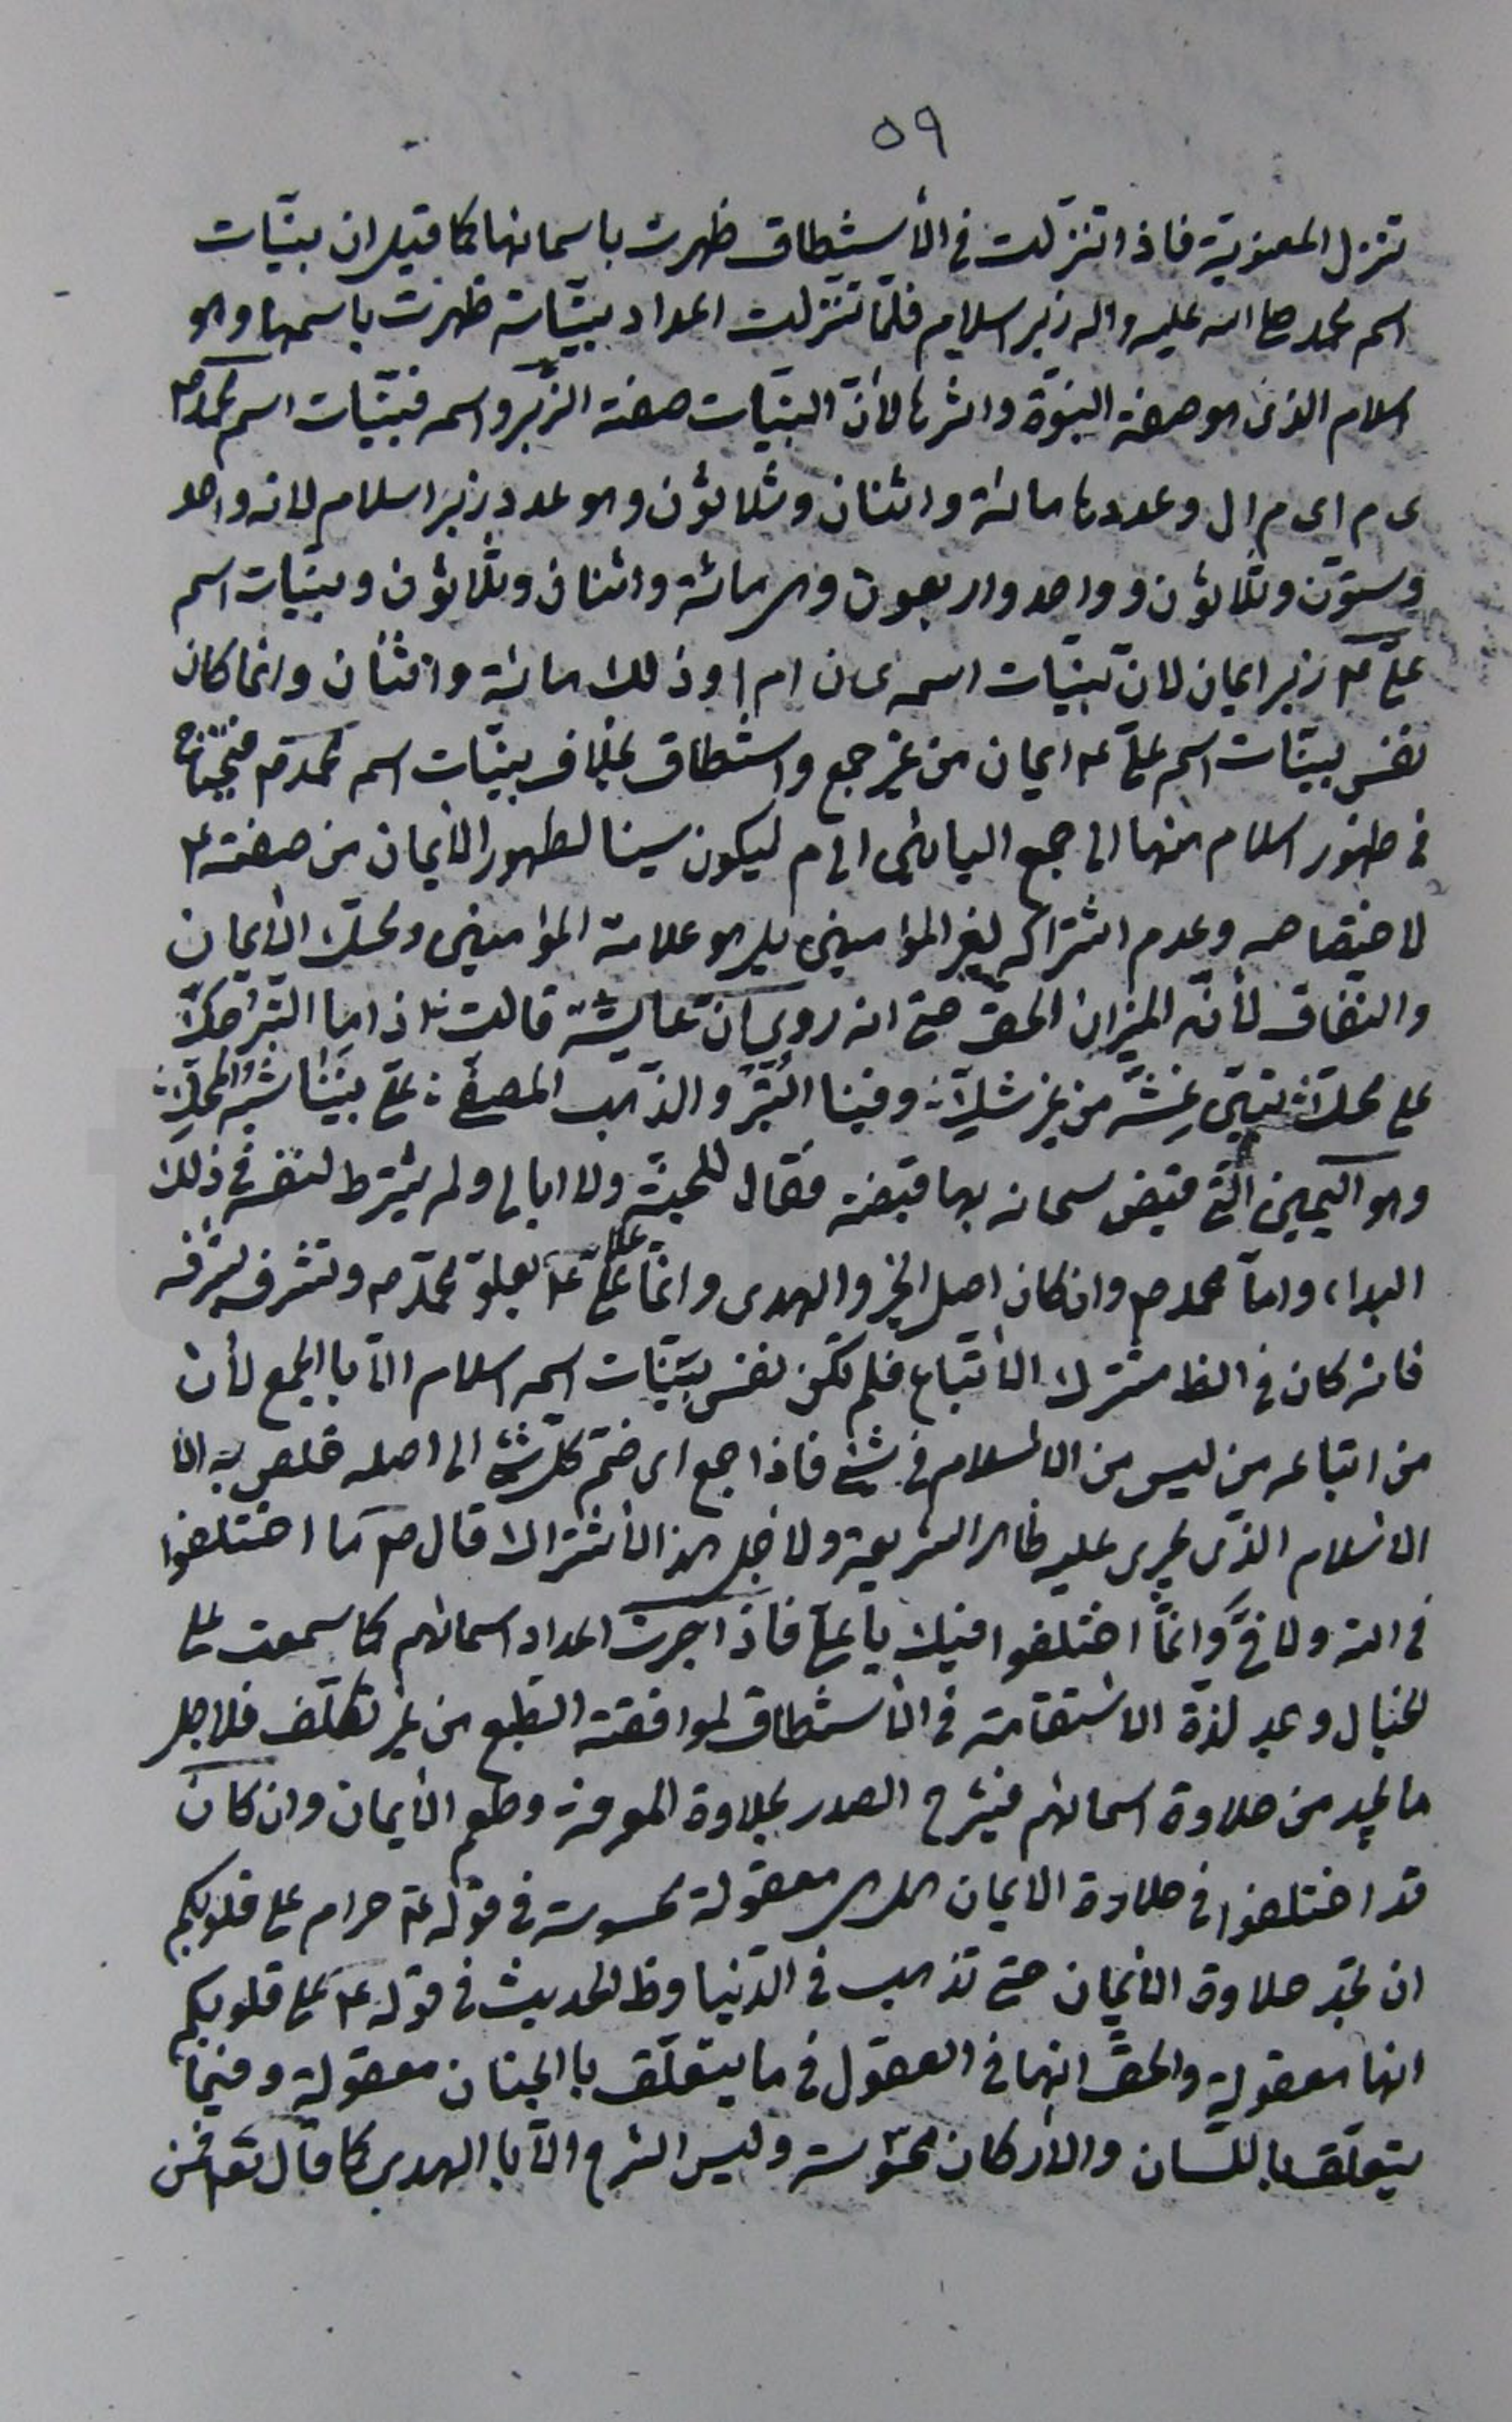 ٥٩
تنزل المعنوية فاذا تنزلت فى الأستنطاق ظهرت باسمائها كما قيل ان بينات
اسم محمد صلى الله عليه واله زبر اسلام فلمّا تنزلت اعداد بيّناته ظهرت باسمها وهو
اسلام الذى هو صفة النبوّة واثرها لأنّ البيّنات صفة الزّبر واسمه فبيّنات اسم محمد ص
ى م اى م ال وعددها مائة واثنان وثلاثون وهو عدد زبر اسلام لانه واحد
وستّون وثلاثون وواحد واربعون وهى مائة واثنان وثلاثون وبيّنات اسم
علىّ ع زبر ايمان لانّ بيّنات اسمه ى ن ا م ا وذلك مائة واثنان وانما كان
نفس بيّنات اسم علىّ ع ايمان من غير جمع واستنطاق بخلاف بيّنات اسم محمد ص فيحتاج
فى ظهور اسلام منها الى جمع اليائين الى م ليكون سينا لظهور الأيمان من صفته ع
لاختصاصه وعدم اشتراكه لغير المؤمنين بل هو علامة المؤمنين ومحك الأيمان
والنفاق لأنّه الميزان الحق حتى انه روى انّ عايشة قالت اذا ما التبر حكّ
على محكّ تبيّن غشّه من غير شكّ وفينا التبر والذهب المصفّى علىّ بيننا شبه المحكّ
وهو اليمين التى قبض سبحانه بها قبضة فقال للجنّة ولا ابالى ولم يشترط لنفسه فى ذلك
البداء واما محمد ص وان كان اصل الخير والهدى وانّما علا علىّ ع بعلوّ محمّد ص وتشرف بشرفه
فانه كان فى الظ مشترك الأتباع فلم تكن نفس بيّنات اسمه اسلام الّا بالجمع لأن
من اتباعه من ليس من الاسلام فى شئ فاذا جمع اى ضمّ كلّ شئ الى اصله خلص به الا
الاسلام الذى يجرى عليه ظاهر الشريعة ولاجل هذا الأشتراك قال ص ما اختلفوا
فى الله ولا فىّ وانّما اختلفوا فيك يا علىّ فاذا اجرت اعداد اسمائهم كما سمعت على
الخيال وجد لذة الاستقامة فى الأستنطاق لموافقته الطبع من غير تكلّف فلاجل
ما يجد من حلاوة اسمائهم فيشرح الصدر بحلاوة المعرفة وطعم الأيمان وان كان
قد اختلفوا فى حلاوة الايمان هل هى معقولة محسوسة فى قوله ع حرام على قلوبكم
ان تجد حلاوة الأيمان حتى تذهب فى الدّنيا وظ الحديث فى قوله ع على قلوبكم
انها معقولة والحقّ انها فى العقول فى ما يتعلّق باالجنان معقولة وفيما
يتعلّق باللسان والأركان محسّوسة وليس الشرح الّا باالهدى كما قال تعم فمن